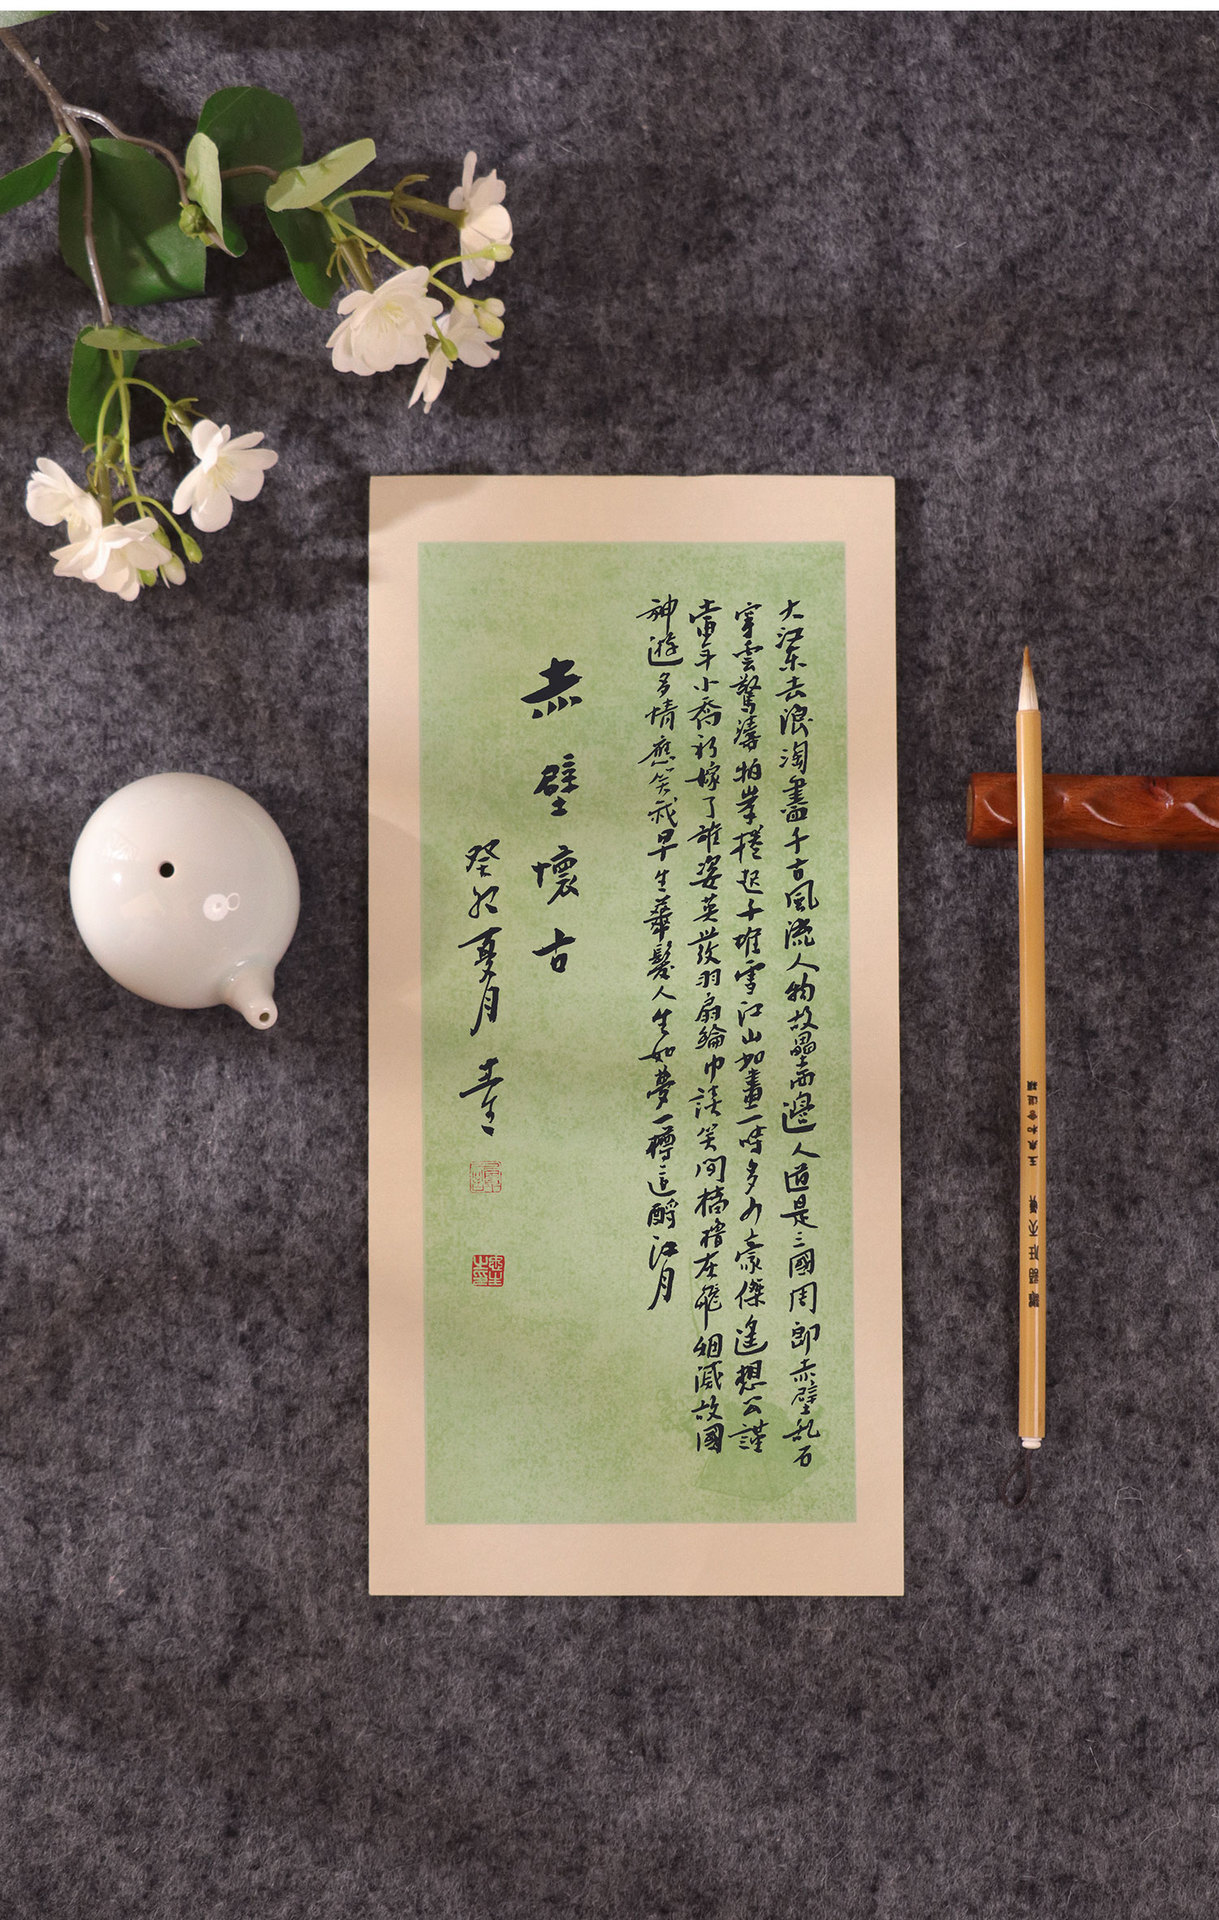 大江东去浪淘盡千古風流人物故壘西邊人道是三國周郎赤壁乱石
穿雲驚濤拍岸捲起千堆雪江山如畫一時多少豪傑遙想公謹
當年小喬初嫁了雄姿英發羽扇綸巾談笑間檣櫓灰飛烟滅故國
神遊多情應笑我早生華髮人生如夢一樽還酹江月
赤壁懷古
癸卯夏月